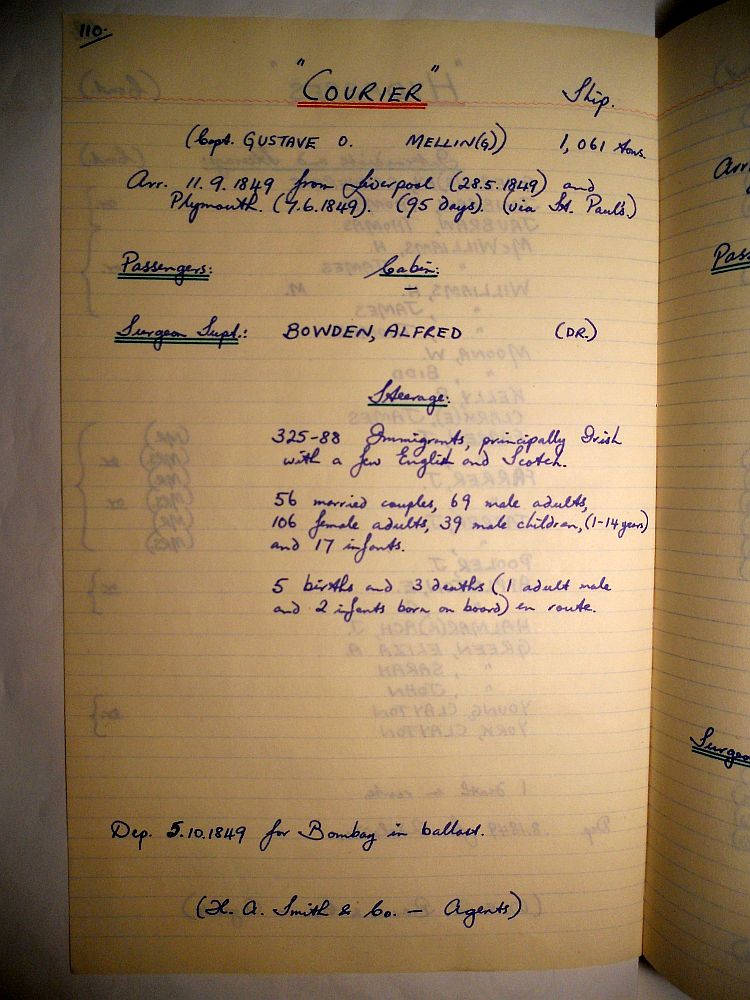 110.
"COURIER" Ship.
(Capt. GUSTAVE O. MELLIN(G)) 1,061 tons.
Arr. 11.9.1849 from Liverpool (28.5.1849) and
Plymouth. (7.6.1849). (95 days). (via St. Paul's.)
Passengers: Cabin:
–
Surgeon Supt.: BOWDEN, ALFRED (DR.)
Steerage:
325-88 Immigrants, principally Irish
with a few English and Scotch.
56 married couples, 69 male adults,
106 female adults, 39 male children, (1-14 years)
and 17 infants.
5 births and 3 deaths (1 adult male
and 2 infants born on board) en route.
Dep. 5.10.1849 for Bombay in ballast.
(H. A. Smith & Co. – Agents)
Arr
Pass
Surgeo